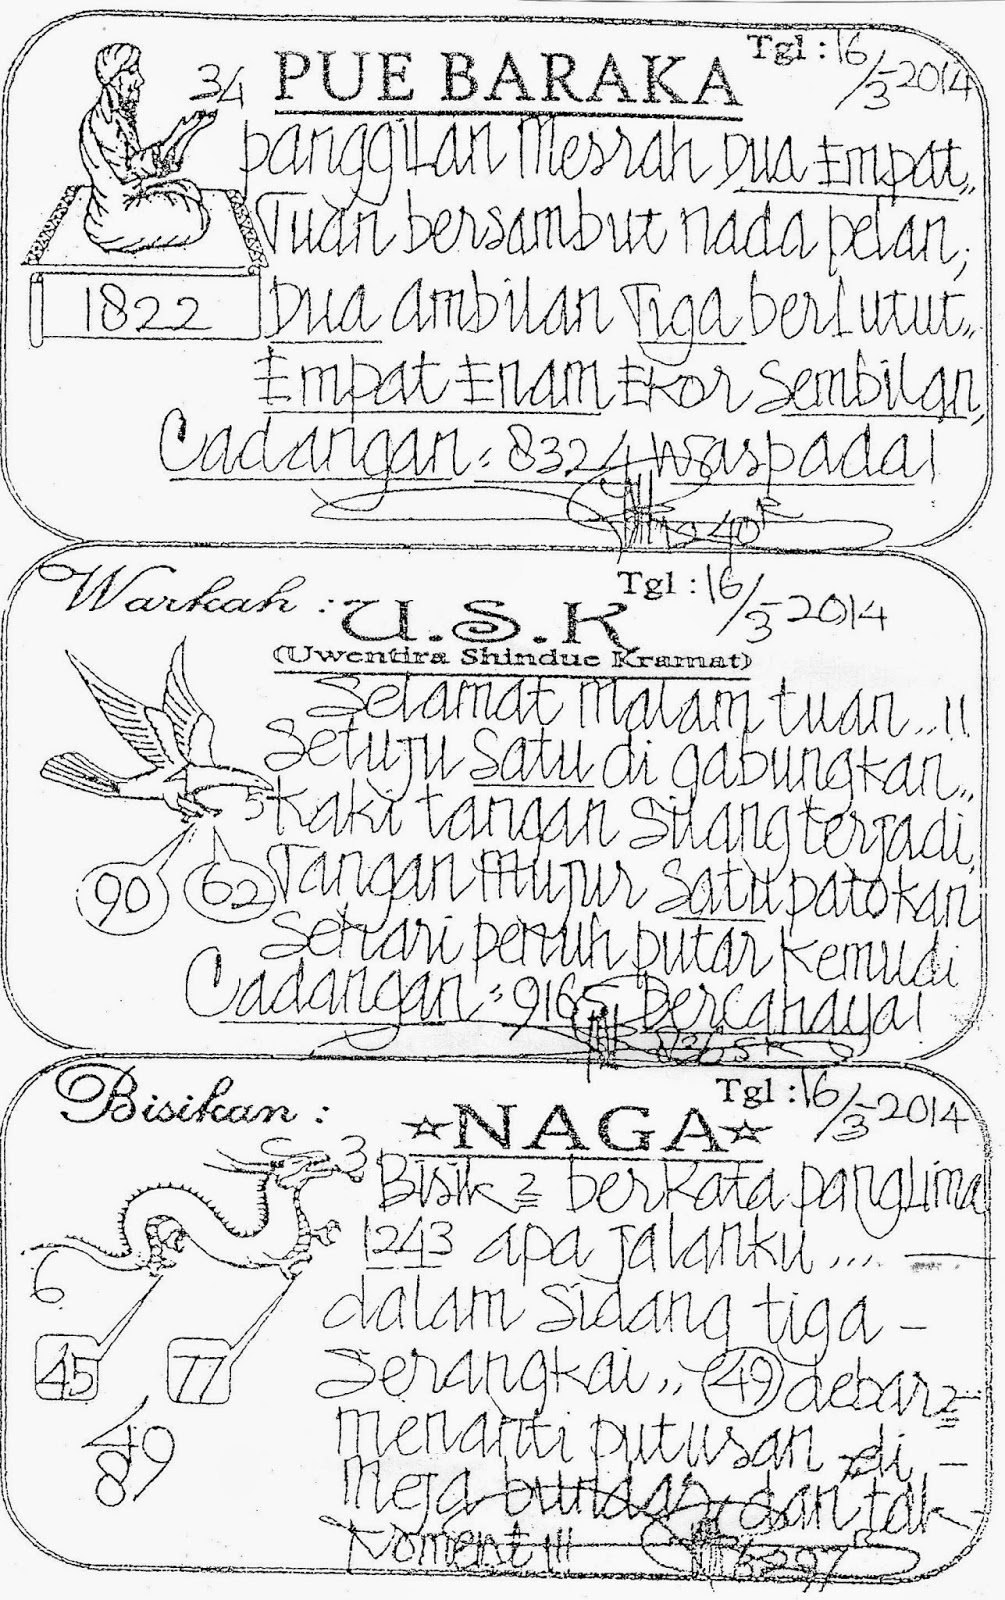 PUE BARAKA
Tgl : 16/3-2014
34
panggilan Mesrah Dua Empat,,
Tuan bersambut nada pelan,
1822
Dua ambilan Tiga berlutut,,
Empat Enam Ekor Sembilan,
Cadangan = 8324 Waspada!
Warkah : U.S.K
Tgl : 16/3-2014
(Uwentira Shindue Kramat)
Selamat malam tuan..!!
Setuju Satu di gabungkan,,
5
Kaki tangan Silang terjadi,
90 62
Tangan Mujur Satu patokan
Sehari penuh putar kemudi
Cadangan = 9165 Bercahaya!
Bisikan : ☆NAGA☆
Tgl : 16/3-2014
3
Bisik 2 berkata panglima
1243 apa jalanku....
6
dalam Sidang tiga -
45 77
Serangkai,, 49 debar 2
49
8
menanti putusan di -
Meja bundar, dan tak -
Koment!!!